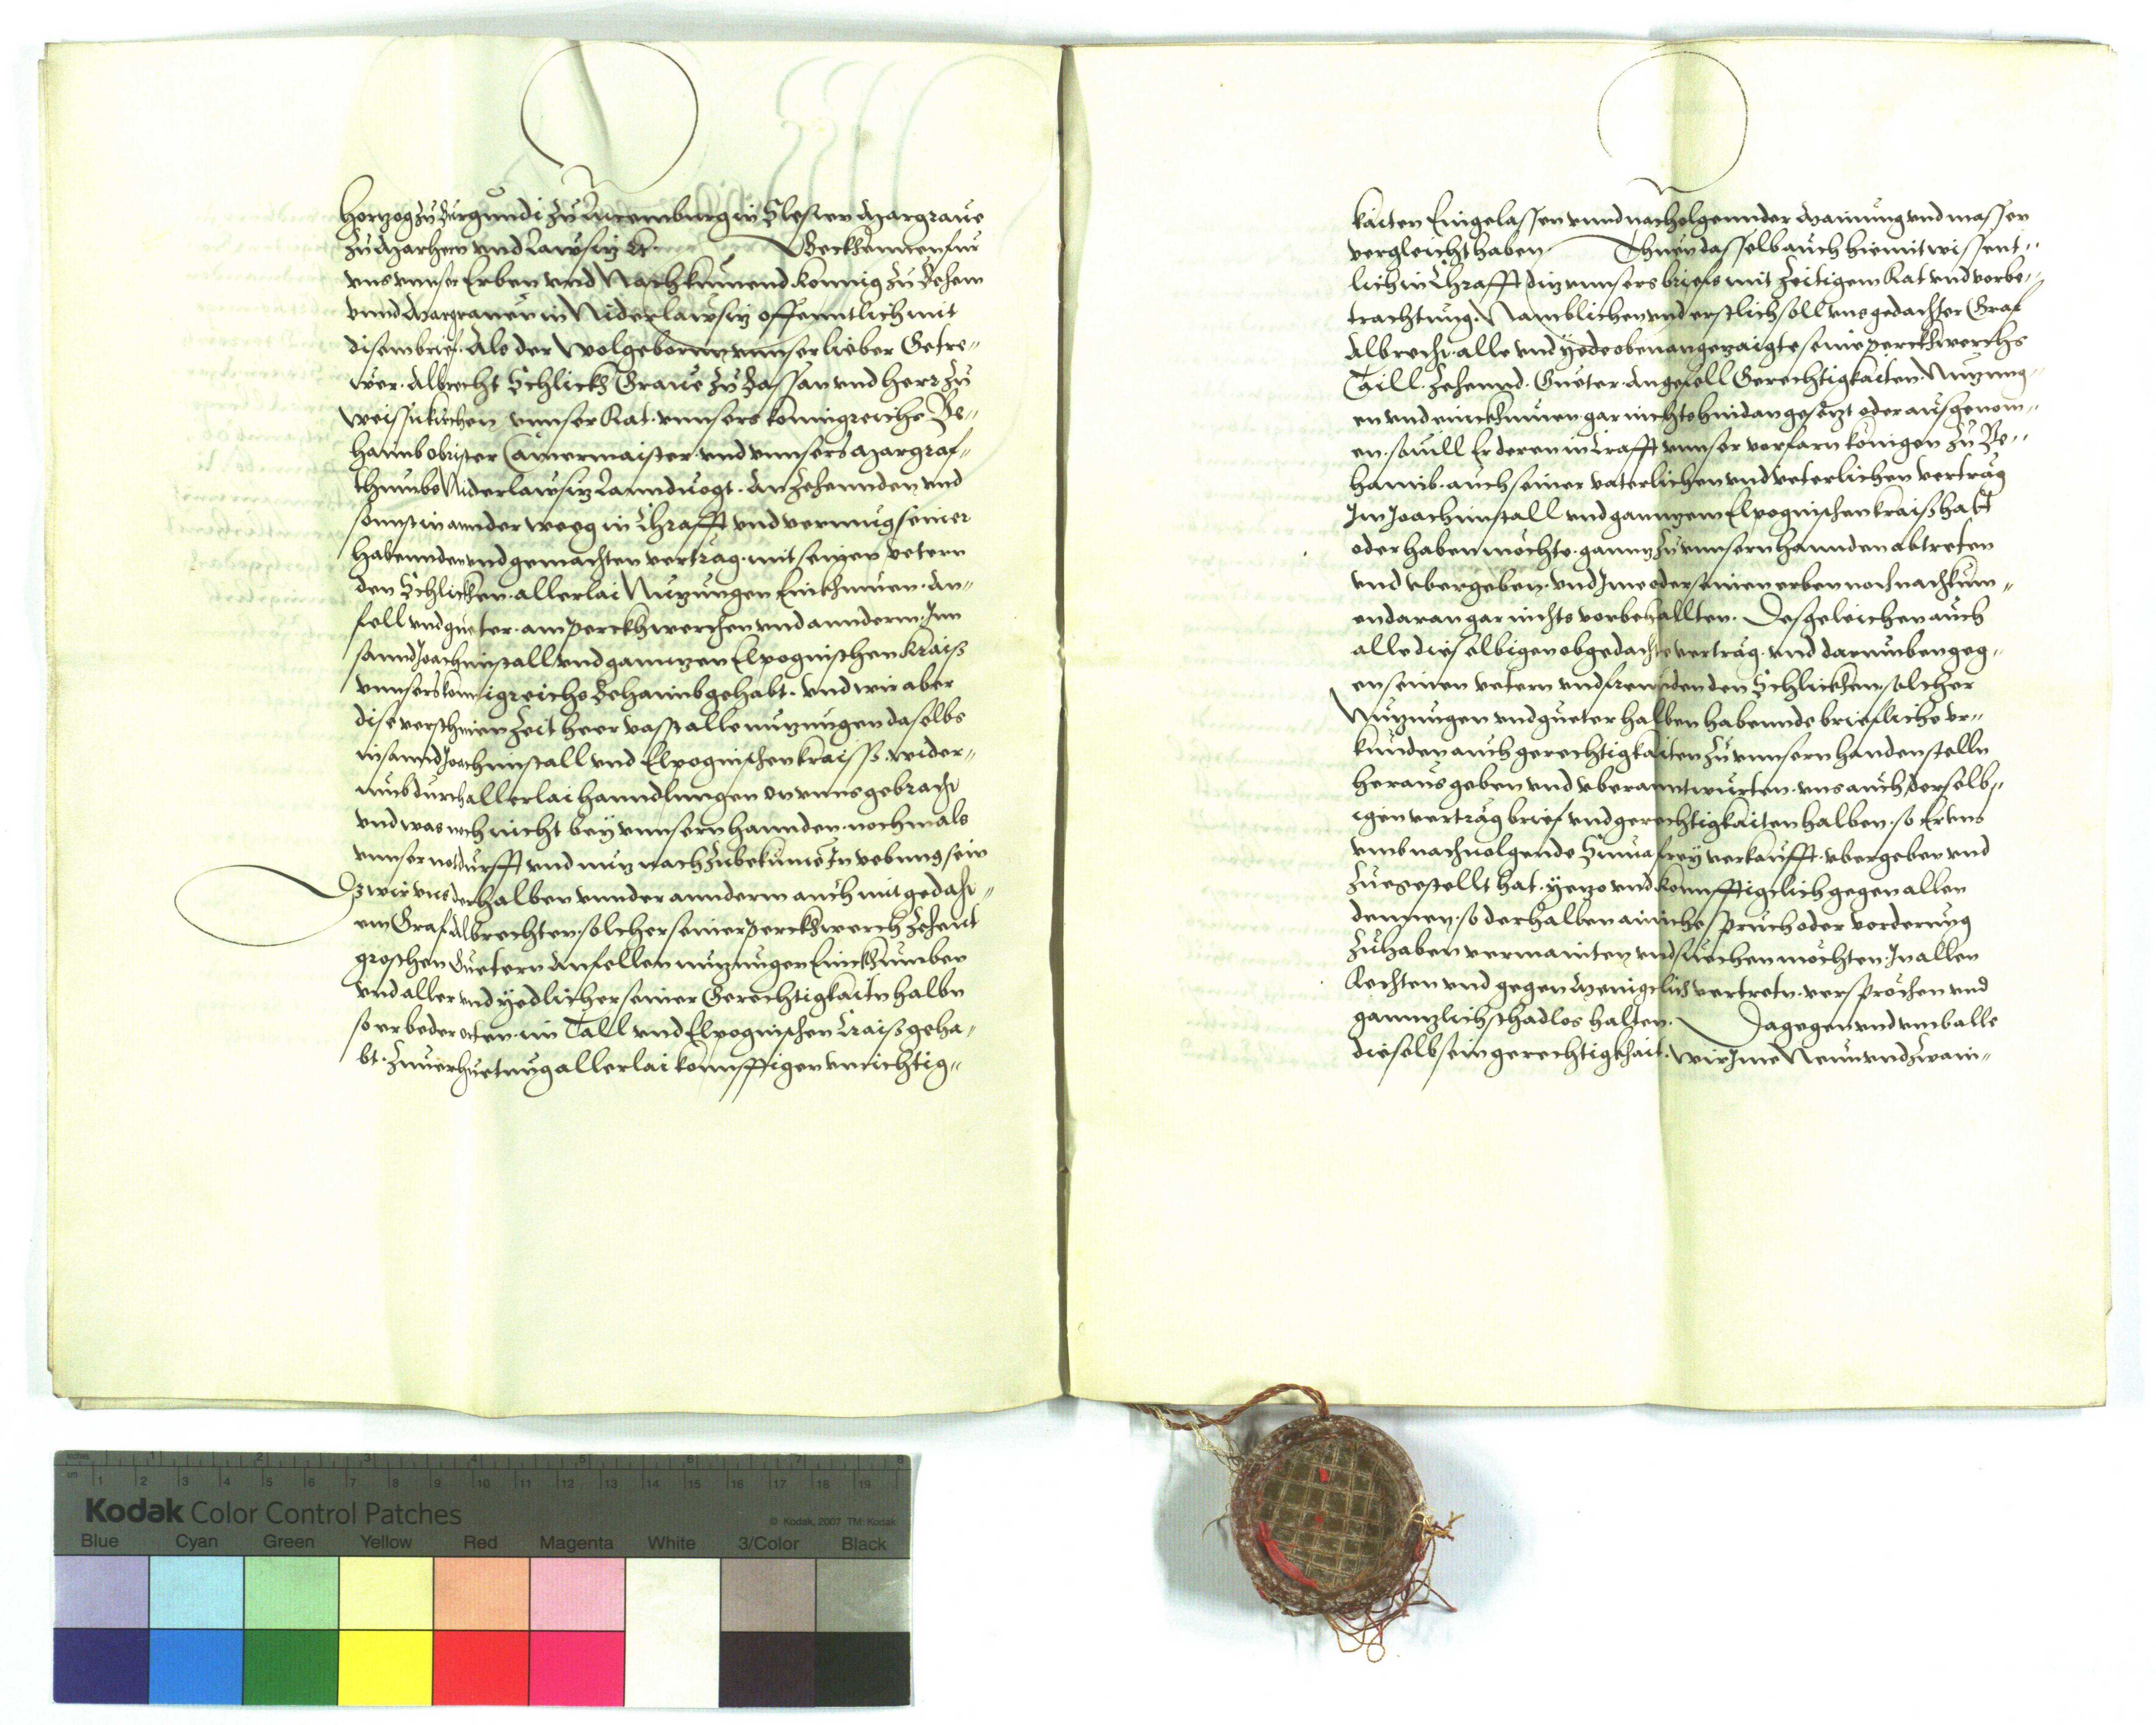 Hertzog zu Burgundi zu Lutzemburg in Slesien Margraue
zu Marhern vnd Lawsitz &c. Beckhennen fur
vns vnnser Erben vnd Nachkumend Konnig zu Behem
vnnd Margrauen in Niderlawsitz offenntlich mit
disem brief. Als der Wolgeborn vnnser lieber Getre„
wer. Albrecht Schlickh Graue zu Passan vnd Herr zu
Weissnkirchen vnnser Rat. vnnsers konnigreichs Be„
haimb obrister Camermaister. vnd vnnsers Margraf„
thumbs Niderlawsitz Lanndtuogt. An zehennden vnd
sonnst in annder weeg in Chrafft vnd vermug seiner
habennden vnd gemachten vertrag. mit seinen vetern
den Schlickhen. allerlai Nutzungen Einkhumen. An„
fell vnd gueter. am Perckhwerchen vnd annderm. Inn
sannd Joachimstall vnd ganntzen Elpognischen Kraiss
vnnsers konnigreichs Behaimb gehabt. vnd wir aber
dise verschinen Zeit heer vasst alle nutzungen daselbs
in sannd Joachimstall vnd Elpognischen kraiss. wider„
umb durch allerlai hanndlungen an vnns gebracht
vnd was noch nicht bey vnnsern hannden. nochmals
vnnser notdurfft vnd nutz nach zubekumen In vebung sein
Dz wir vns derhalben vnnder annderm auch mit gedacht„
em Graf Albrechten. solcher seiner Perckhwerch Zehent
groschen Guetern Anfellen nutzungen Einckhumben
vnd aller vnd yedlicher seiner Gerechtigkaitn halbn
so er beder orten. im Tall vnd Elpognischen Kraiss geha„
bt. Zuuerhuetung allerlai konnfftiger vnrichtig„
kaiten Eingelassen vnnd nachuolgennder Mainung vnd massen
vergleicht haben Thuen dasselb auch hiemit wissent„
lich in Chrafft ditz vnnsers briefs mit zeitigem Rat vnd vorbe„
trachtung. Namblichen vnd erstlich soll vns gedachter Graf
Albrecht. alle vnd yede oben angezaigte seine Perckhwerchs
Taill. Zehennd. Gueter. Angefell Gerechtigkaiten. Nutzung„
en vnd einckhumen gar nichts hindangesetzt oder ausgenom„
en. souill Er deren in Krafft vnnser vorfarn konigen zu Be„
haimb. auch seiner vaterlichen vnd veterlichen vertrag
Im Joachimstall vnd ganntzem Elpognischen kraiss hatt
oder haben möchte. ganntz zu vnnsern hannden abtreten
vnd vbergeben. vnd Ime oder seinen erben noch nachkum„
en daran gar nichts vorbehallten. Desgeleichen auch
alle dieselbigen obgedachte vertrag. vnd darumben geg„
en seinen vetern vnd freunden den Schlickhen. solcher
Nutzungen vnd gueter halben habennde briefliche vr„
kunden auch gerechtigkaiten zu vnnsern handen stelln
heraus geben vnd vberanntwurten. vns auch derselb„
igen vertrag brief vnd gerechtigkaiten halben. so Er vns
vmb nachuolgende Suma frey verkaufft. vbergeben vnd
zuegestellt hat. yetzo vnd konnfftigclich gegen allen
dennen. so derhalben ainiche spruch oder vorderung
zuhaben vermainten vnd suechen möchten. In allen
Rechten vnd gegen Menigclich vertretn. versprochen vnd
ganntzlich schadlos halten. Dagegen vnd vmb alle
dieselb sein gerechtigkhait. Wir Ime Neun vnd zwain„
Kodak Color Control Patches
© Kodak, 2007 TM: Kodak
Blue Cyan Green Yellow Red Magenta White 3/Color Black